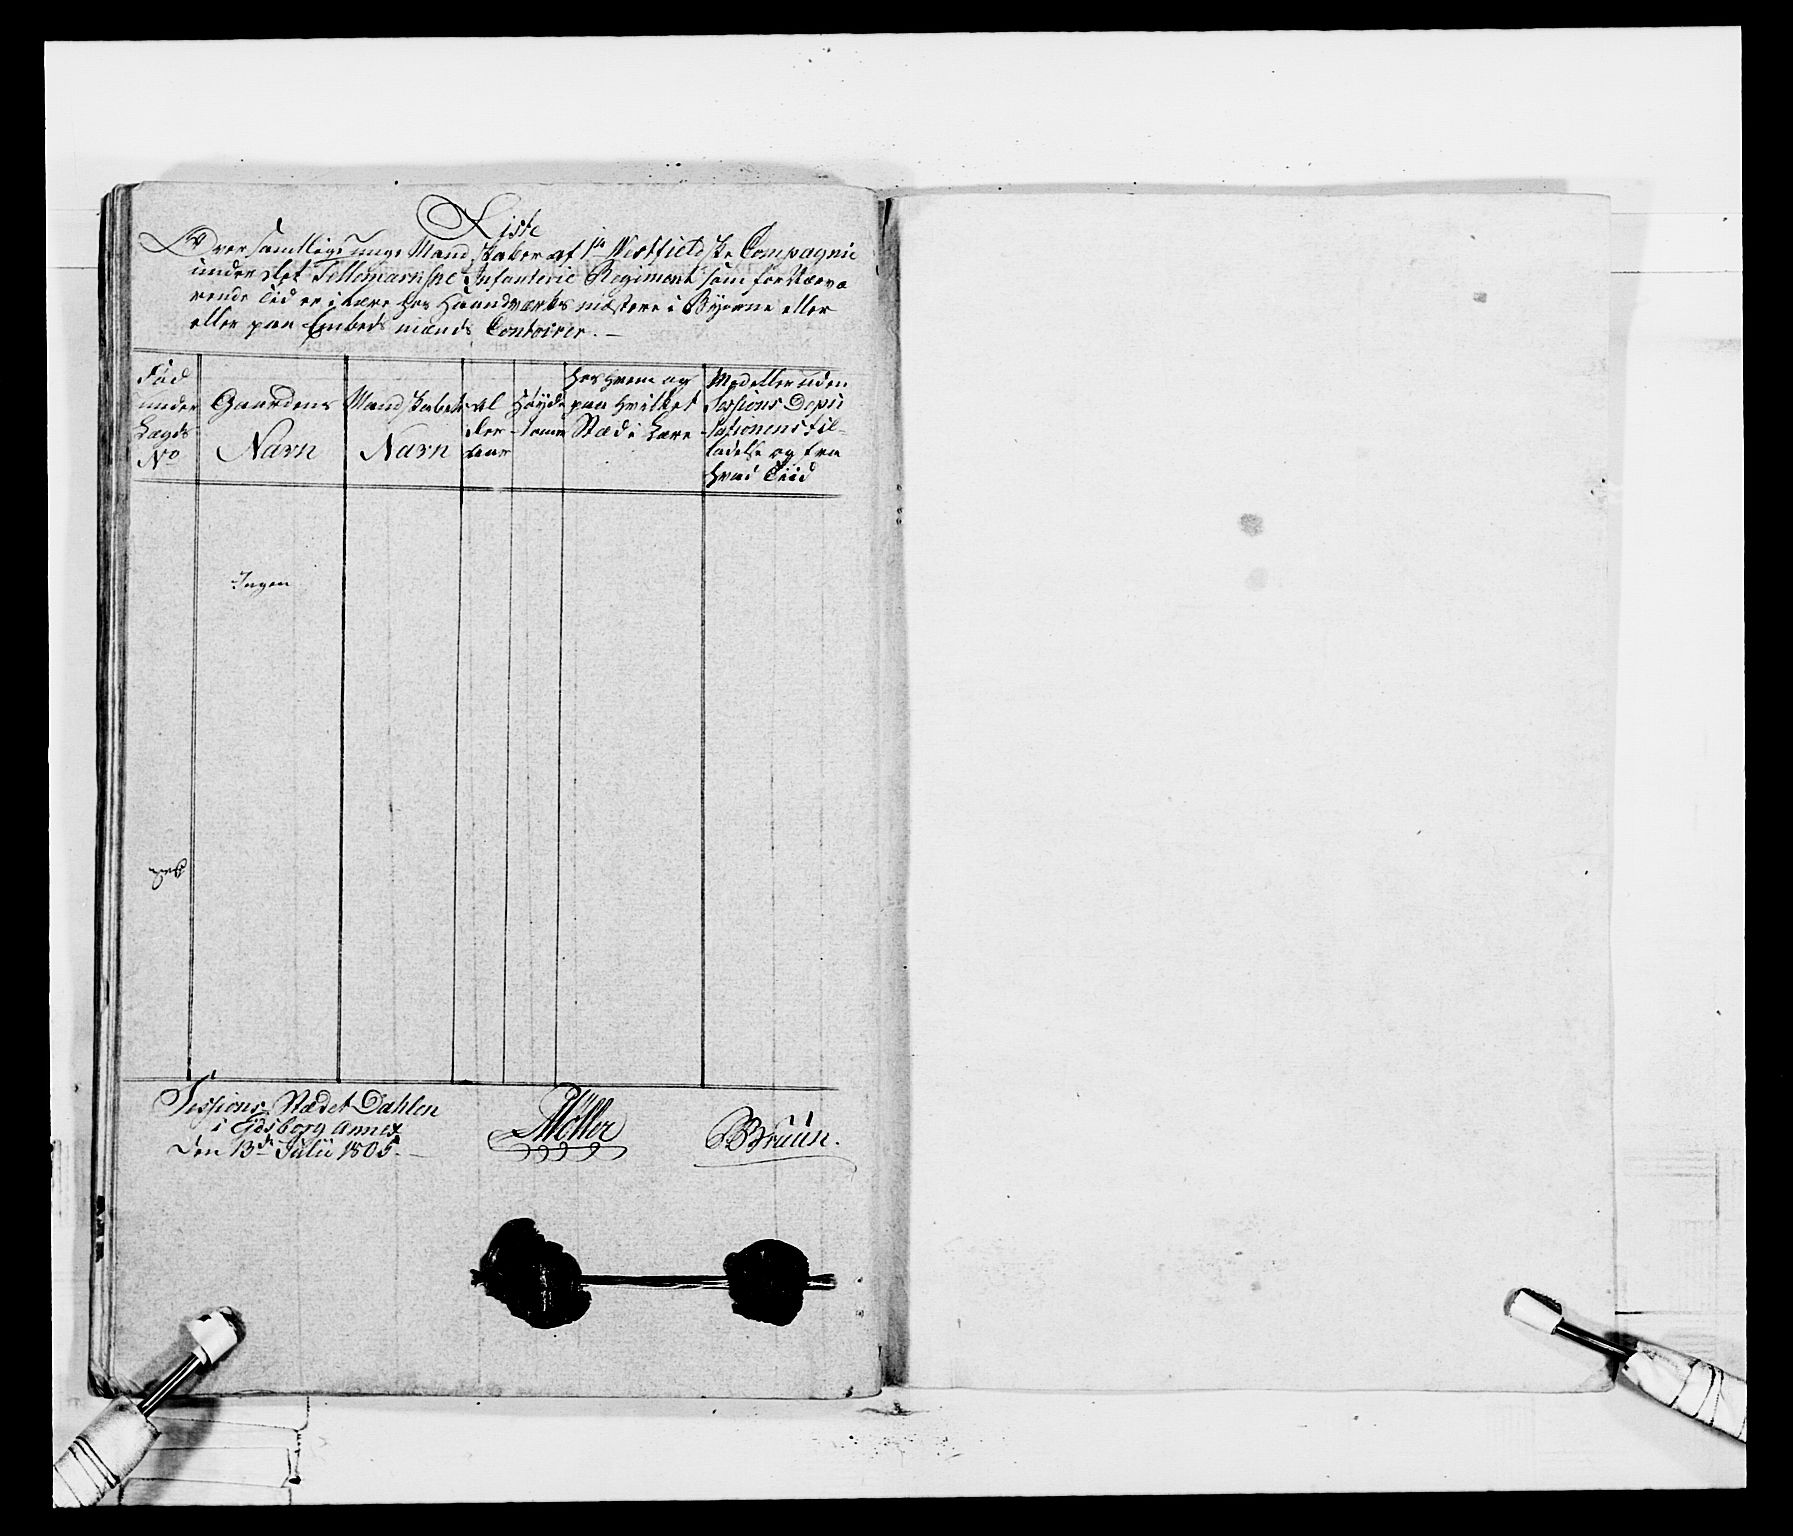 Liste
Over samtlige unge Mandskaber af 1te Westfieldske Compagnie
under det Tellemarkske Infanterie Regiment som for Nærvæ
rende Tid er i Lære hos Haandværks mestere i Byerne eller
eller paa Embeds mænds Contoirer. —
Fød under Lægds No
Gaardens Navn
Mandskabets Navn
Al der aar
Høyde tomer
hos hvem og paa hvilket Stæd i Lære
Med eller uden Sessions Depu tationens Til- ladelse og fra hvad Tiid
Ingen
Sessions Stædet Dahlen
i Eidsborg Annex
Den 13de Julii 1805. —
Møller
Bruun.